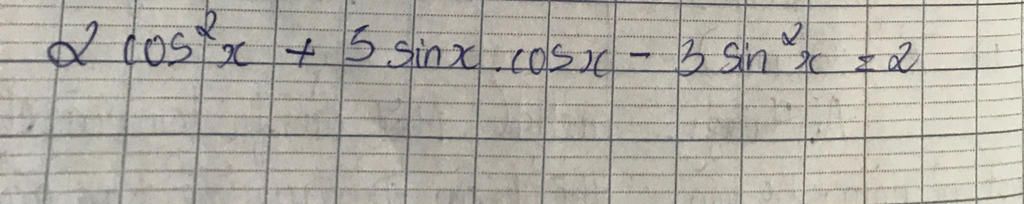 2 cos²x + 5 sinx.cosx - 3 sin²x = 2